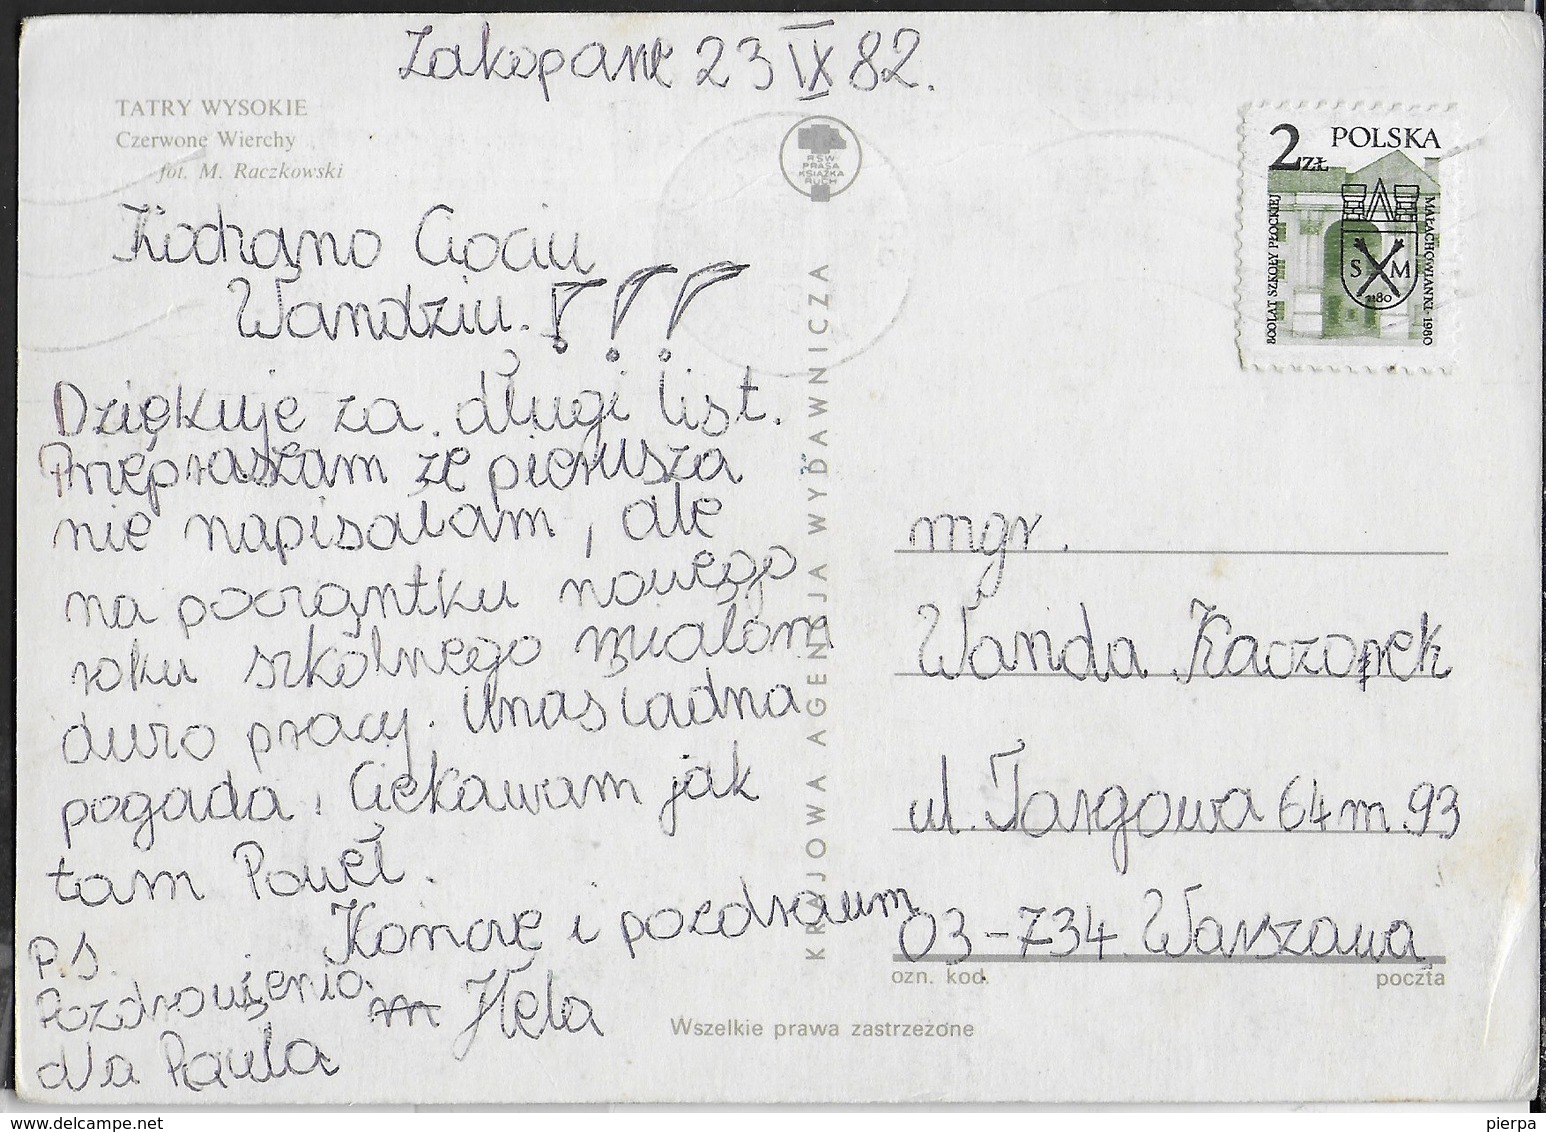 Zakopane 23 IX 82.
TATRY WYSOKIE
Czerwone Wierchy
fot. M. Raczkowski
RSW
PRASA
KSIĄŻKA
RUCH
Kochano Ciociu
Wandziu. !!!
Dziękuję za długi list.
Przepraszam że pierwsza
nie napisałam, ale
na początku nowego
roku szkolnego miałam
dużo pracy. U nas ładna
pogada. Ciekawam jak
tam Paweł.
Kończe i pozdrawiam
Hela
P.S.
Pozdrowienia
dla Pawła
KRAJOWA AGENCJA WYDAWNICZA
2 ZŁ POLSKA
800 LAT SZKOŁY PŁOCKIEJ
MAŁACHOWIANKI-1980
S M
1180
mgr.
Wanda Kaczorek
ul. Targowa 64 m. 93
03-734 Warszawa
ozn. kod. poczta
Wszelkie prawa zastrzeżone
www.delcampe.net
pierpa